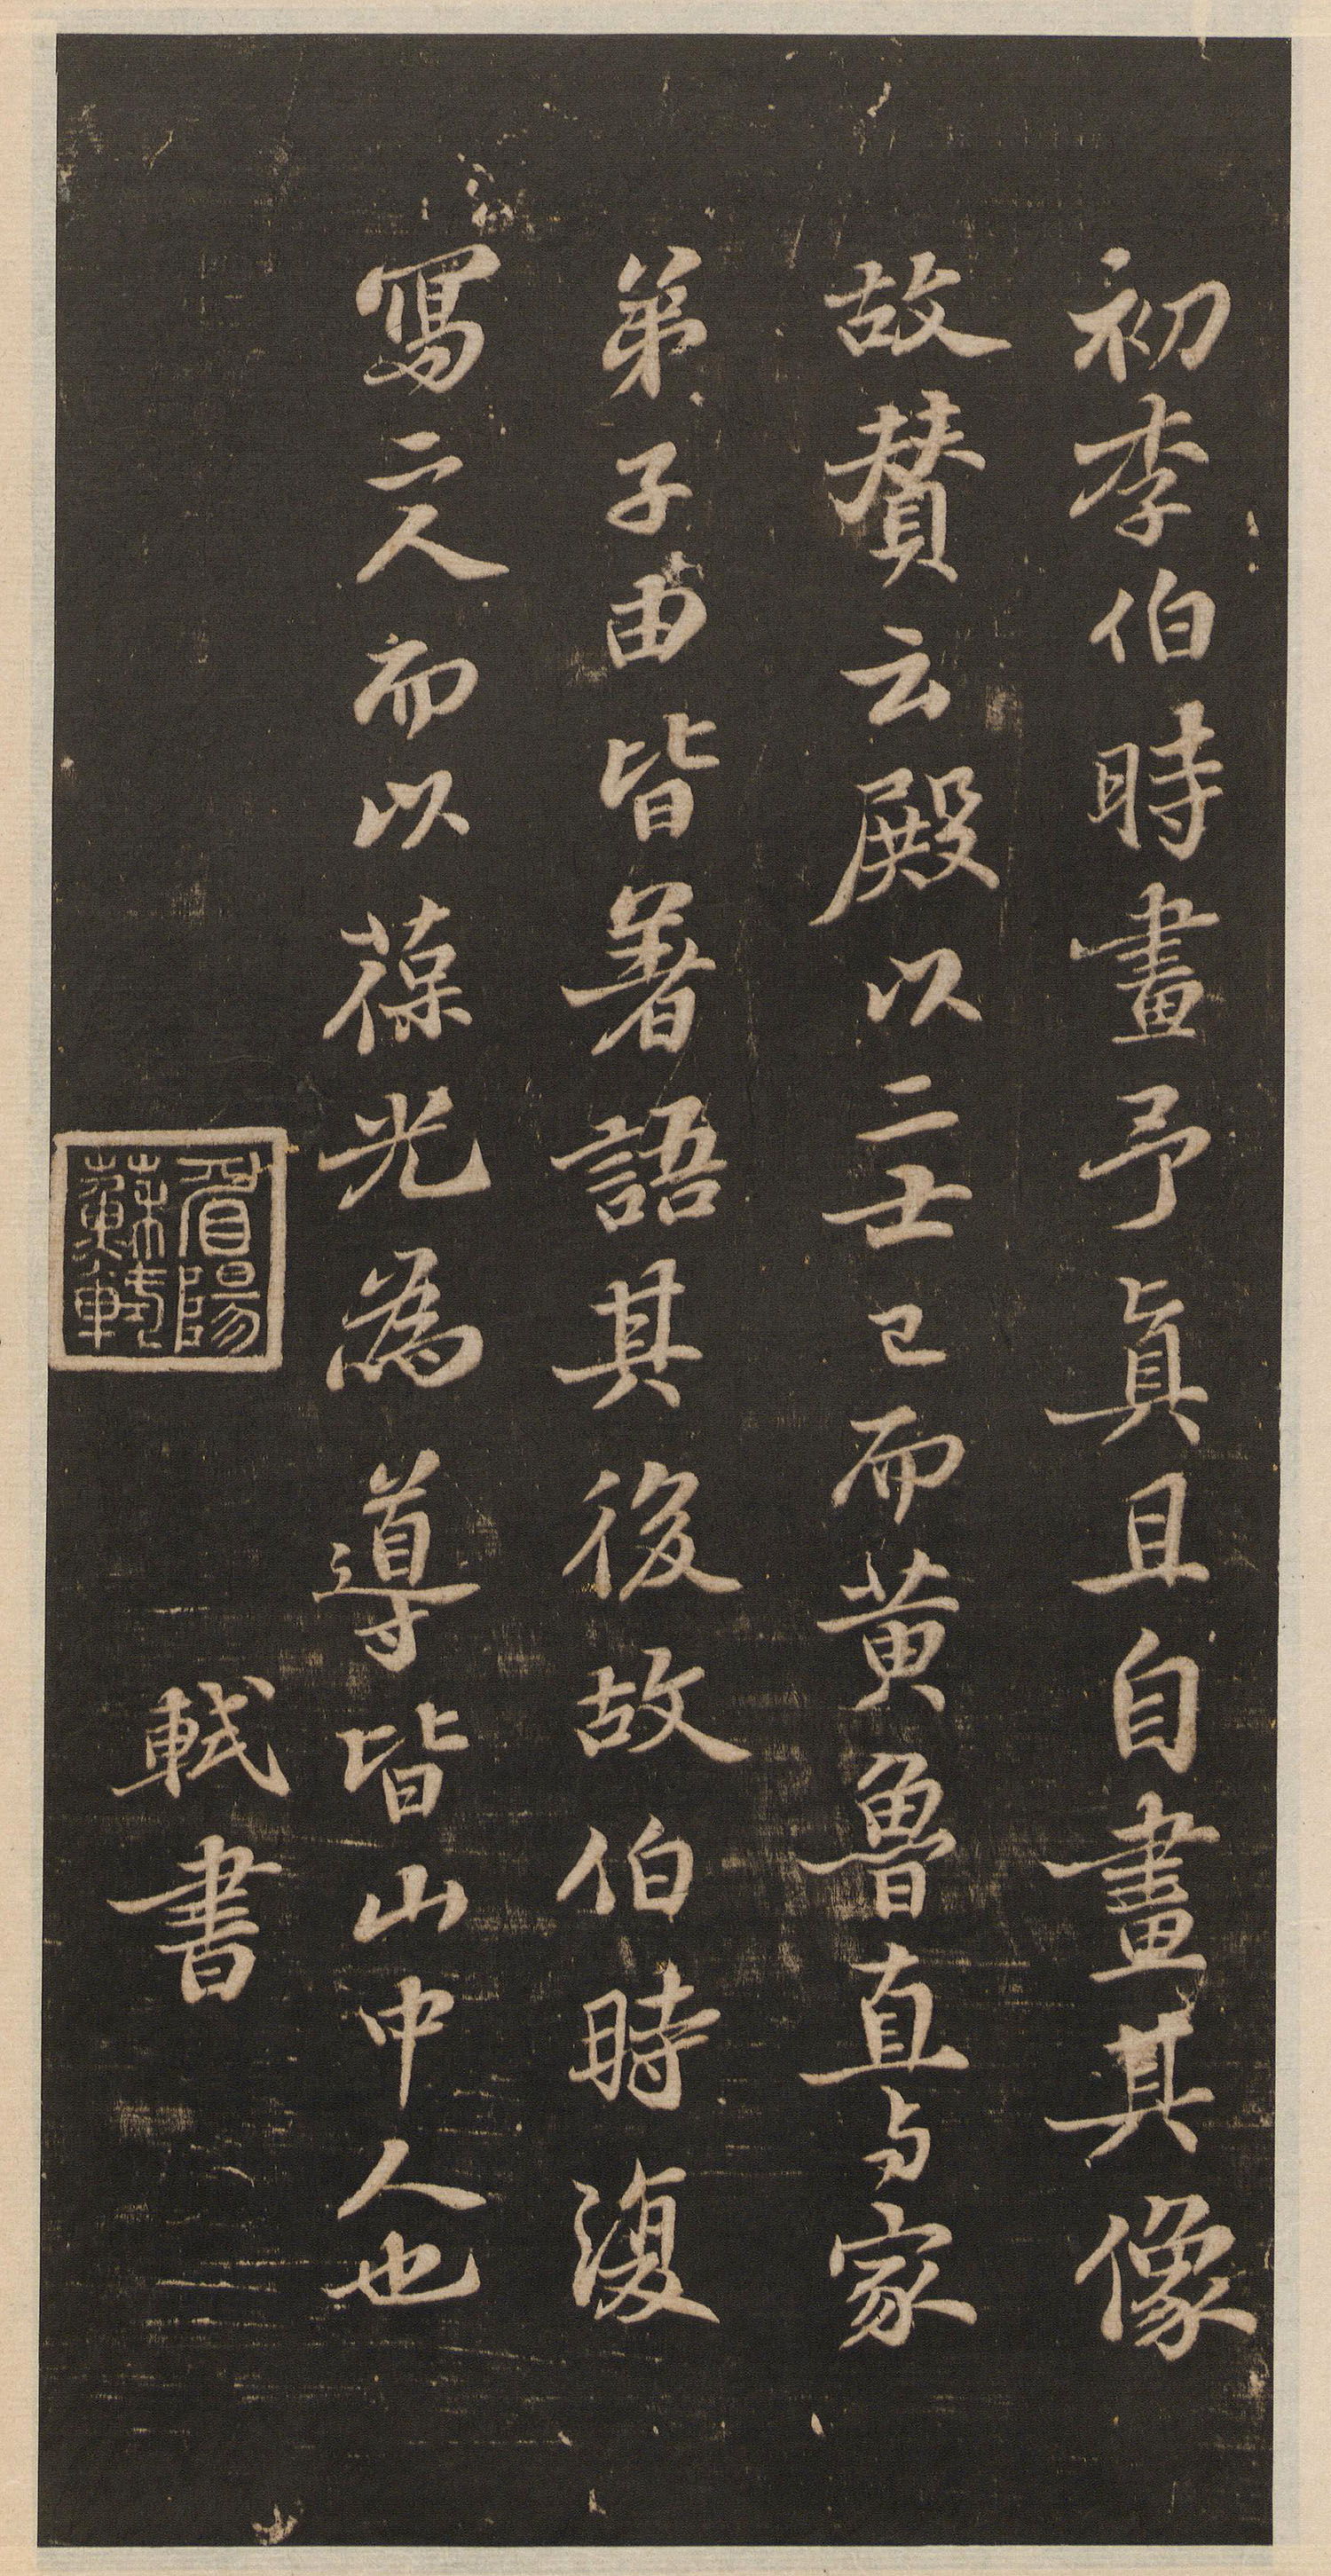 初李伯時畫予真且自畫其像
故贊云殿以二士已而黄魯直与家
弟子由皆署語其後故伯時復
寫二人而以葆光為導皆山中人也
軾書
眉陽
蘇軾